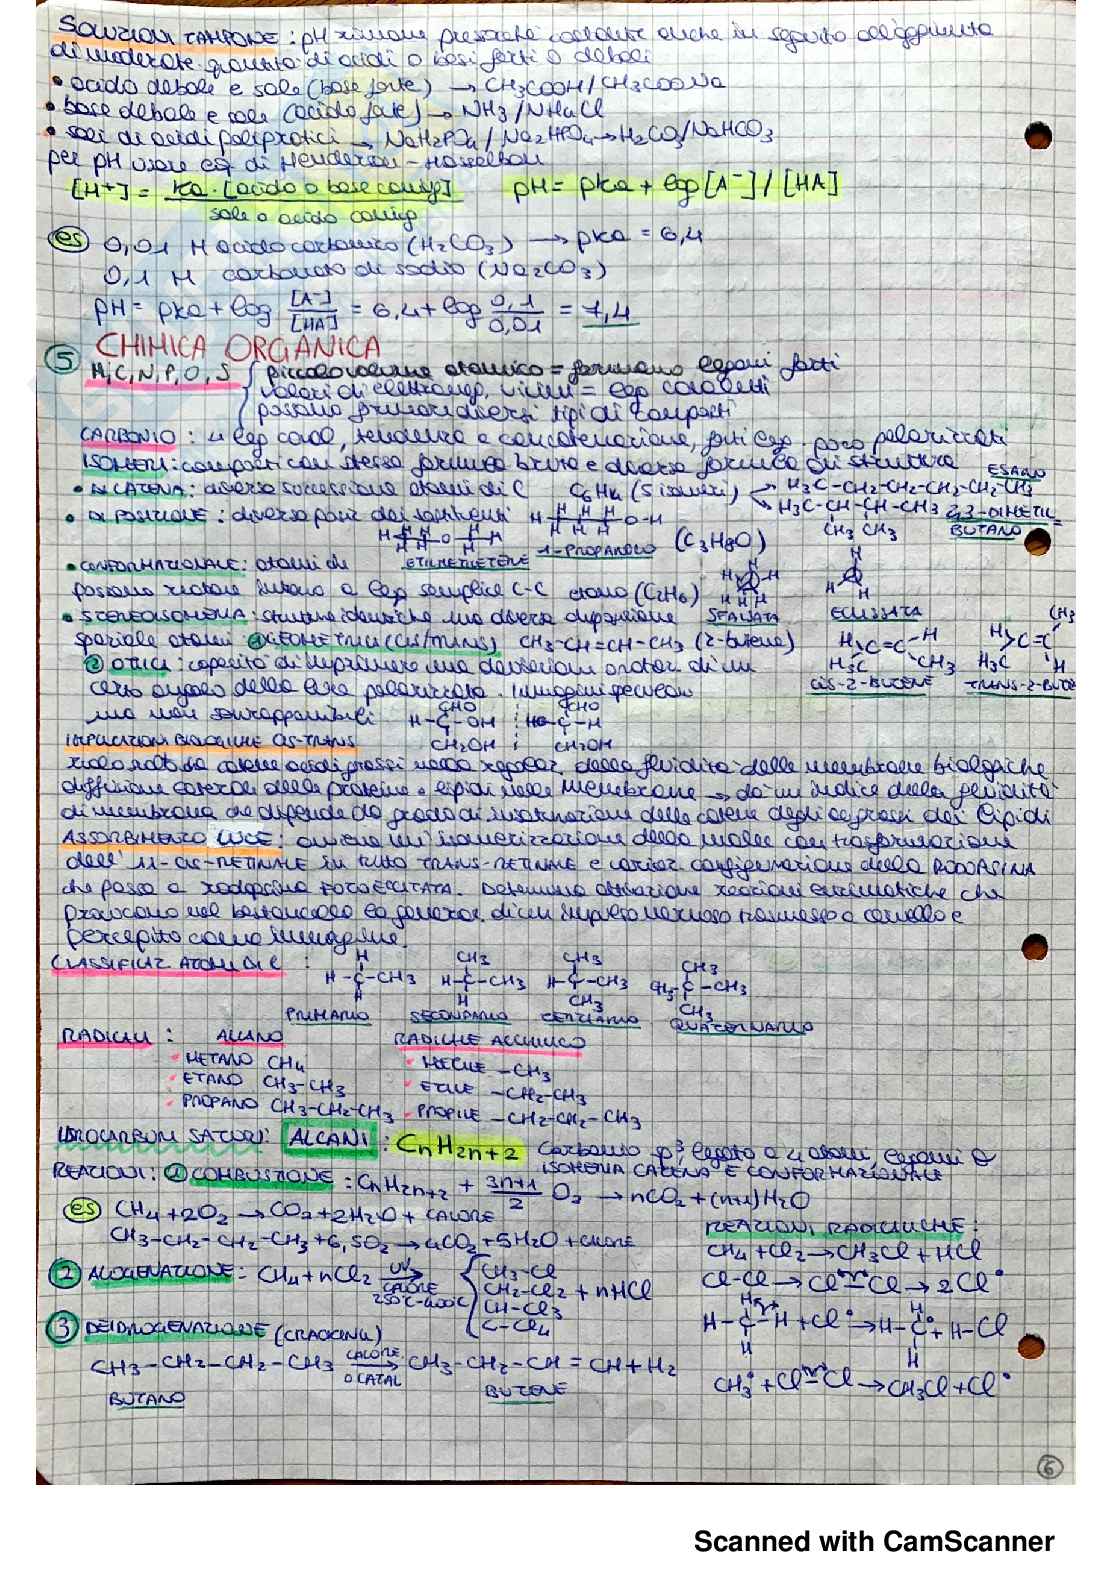 SOLUZIONI TAMPONE : pH rimane pressoché costante anche in seguito all'aggiunta
di moderate quantità di acidi o basi forti o deboli
• acido debole e sale (base forte) → CH3COOH/CH3COONa
• base debole e sale (acido forte) → NH3/NH4Cl
• sali di acidi poliprotici → NaH2PO4/Na2HPO4 → H2CO3/NaHCO3
per pH usare eq di Henderson-Hasselbach
[H+] = Ka · [acido o base coniug] / sale o acido coniug
pH = pKa + log [A-] / [HA]
es 0,01 M acido carbonico (H2CO3) → pKa = 6,4
0,1 M carbonato di sodio (Na2CO3)
pH = pKa + log [A-]/[HA] = 6,4 + log 0,1/0,01 = 7,4
⑤ CHIMICA ORGANICA
H, C, N, P, O, S { piccolo volume atomico = formano legami forti
valori di elettroneg. vicini = leg covalenti
possono formare diversi tipi di composti
CARBONIO : 4 leg coval, tendenza a concatenazione, forti leg poco polarizzati
ISOMERI : composti con stessa formula bruta e diversa formula di struttura
• DI CATENA : diversa successione atomi di C C6H14 (5 isomeri) → H3C-CH2-CH2-CH2-CH2-CH3 ESANO
→ H3C-CH-CH-CH3 2,3-DIMETIL
CH3 CH3 BUTANO
• DI POSIZIONE : diversa posiz dei sostituenti H H H H O-H
H H H O H H 1-PROPANOLO (C3H8O)
ETILMETILETERE
• CONFORMAZIONALE : atomi che
possono ruotare intorno a leg semplice C-C etano (C2H6)
SFALSATA ECLISSATA
• STEREOISOMERIA : strutture identiche ma diversa disposizione
spaziale atomi ① GEOMETRICI (CIS/TRANS) CH3-CH=CH-CH3 (2-butene)
H H3C C=C H CH3 CIS-2-BUTENE
H H3C C=C CH3 H TRANS-2-BUTE
② OTTICI : capacità di imprimere una deviazione oraria di un
certo angolo della luce polarizzata. Immagini speculari
ma non sovrapponibili
CHO CHO
H-C-OH HO-C-H
CH2OH CH2OH
IMPLICAZIONI BIOLOGICHE CIS-TRANS
ruolo nota sia catene acidi grassi nella regolaz. della fluidità delle membrane biologiche
diffusione laterale delle proteine e lipidi nelle membrane → dà un indice della fluidità
di membrana che dipende da grado di insaturazione delle catene degli ac grassi dei lipidi
ASSORBIMENTO LUCE : avviene un'isomerizzazione della molec con trasformazione
dell' 11-CIS-RETINALE in tutto TRANS-RETINALE e variaz. configurazione della RODOPSINA
che passa a rodopsina FOTOECCITATA. Determina attivazione reazioni enzimatiche che
producono nel bastoncello la generaz. di un impulso nervoso trasmesso a cervello e
percepito come immagine.
CLASSIFICAZ ATOMI DI C :
H H-C-CH3 H PRIMARIO
CH3 H-C-CH3 H SECONDARIO
CH3 H-C-CH3 CH3 TERZIARIO
CH3 CH3-C-CH3 CH3 QUATERNARIO
RADICALI : ALCANO RADICALE ALCHILICO
METANO CH4 METILE -CH3
ETANO CH3-CH3 ETILE -CH2-CH3
PROPANO CH3-CH2-CH3 PROPILE -CH2-CH2-CH3
IDROCARBURI SATURI: ALCANI : CnH2n+2 Carbonio sp3 legato a 4 atomi, legami σ
ISOMERIA CATENA E CONFORMAZIONALE
REAZIONI : ① COMBUSTIONE : CnH2n+2 + 3n+1/2 O2 → nCO2 + (n+1)H2O
es CH4 + 2O2 → CO2 + 2H2O + CALORE
CH3-CH2-CH2-CH3 + 6,5O2 → 4CO2 + 5H2O + CALORE
② ALOGENAZIONE : CH4 + nCl2 UV → CALORE 250°C-400°C { CH3-Cl
CH2-Cl2 + nHCl
CH-Cl3
C-Cl4
③ DEIDROGENAZIONE (CRACKING)
CH3-CH2-CH2-CH3 CALORE → O CATAL CH3-CH2-CH=CH + H2
BUTANO BUTENE
REAZIONI RADICALICHE :
CH4 + Cl2 → CH3Cl + HCl
Cl-Cl → Cl-Cl → 2Cl•
H H-C-H H + Cl• → H H-C• H + H-Cl
CH3• + Cl-Cl → CH3Cl + Cl•
6
Scanned with CamScanner